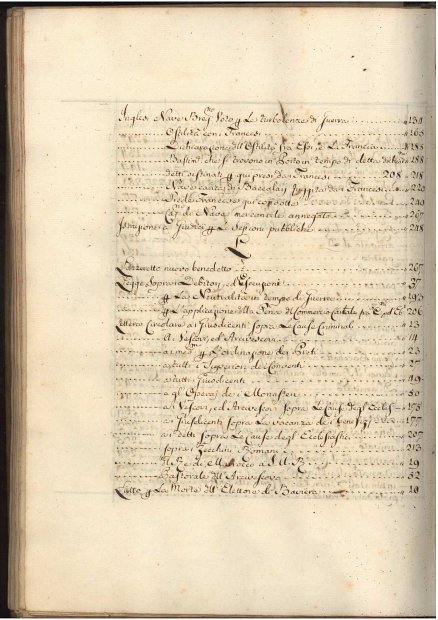 Inglesi Nave Brig. Voto p Le turbolenze di Guerra 134
Ostilità con i Francesi 165
Dichiarazione dll Ostilità fra Essi, e La Francia 185
Bastim. che si trovono in Porto in tempo di detta 188
detti visitati, e qui presi dai Francesi 208 218
Nave carica di Baccalaj da Francesi 220
Prede Francesi qui condotte 240
Cap. di Nave mercantile annegato 267
Istruzione a Giudici p Le Sessioni pubbliche 248
L
Lazzeretto nuovo benedetto 267
Legge Sopra i Debitori, ed Esecuzioni 37
p La Neutralità in tempo di Guerra 193
p L'applicazione dlla Pena 206
Lettera Circolare ai Jusdicenti Sopra Le Cause Criminali 13
A Vescovi, ed Arcivescovi 14
ai med. p L'ordinazione dei Preti 23
a tutti i Superiori de Conventi 27
a tutti Jusdicenti 49
a gl Operaj de i Monasteri 50
ai Vescovi, ed Arcivescovi Sopra Le Cause degl Eccles. 175
ai Jusdicenti Sopra La vacanza de i Benefizj 177
ai detti Sopra Le Cause degl Ecclesiastici 207
Sopra i Zecchini Romani 213
dl Re di Marocco a S. A. R. 19
Pastorale dll Arcivescovo 32
Lutto p La Morte dll Elettore di Baviera 10